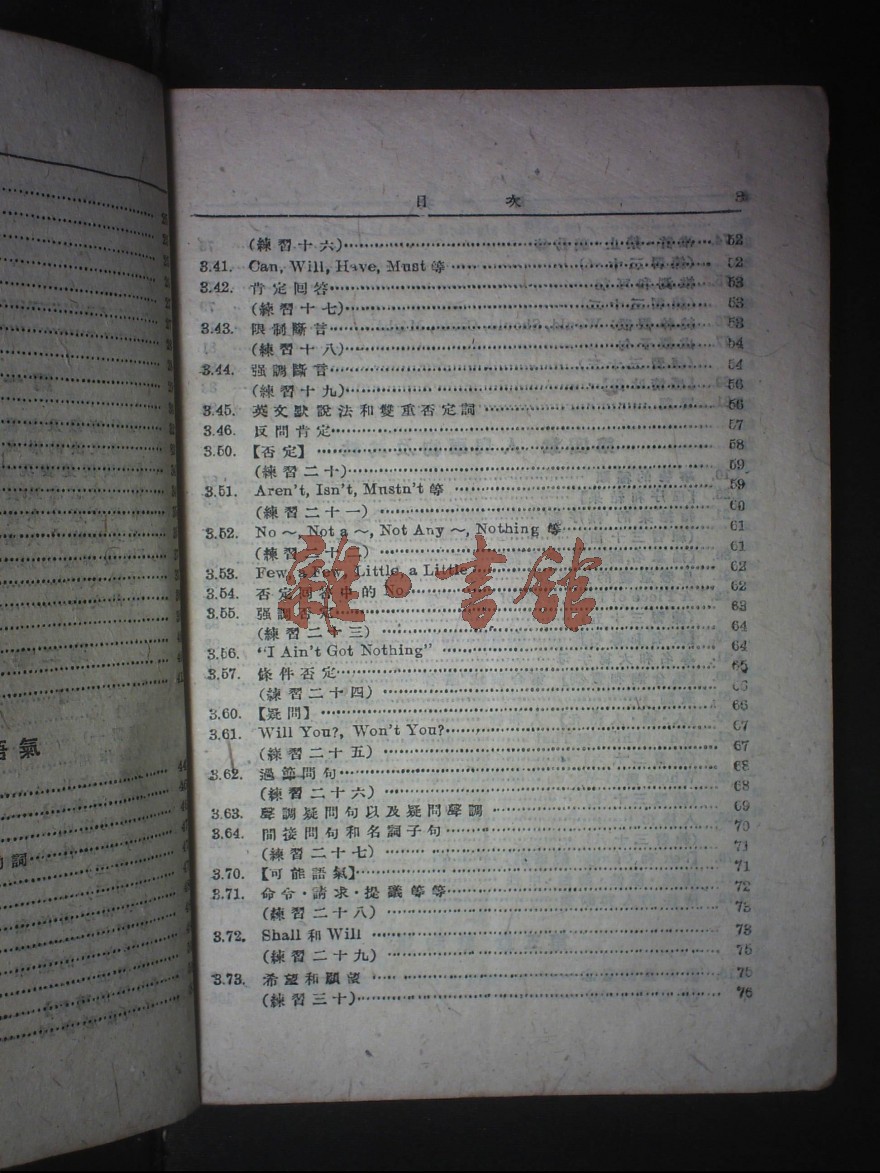 目 次 3
(練習十六) 52
3.41. Can, Will, Have, Must 等 52
3.42. 肯定回答 53
(練習十七) 53
3.43. 限制斷言 53
(練習十八) 54
3.44. 强調斷言 54
(練習十九) 56
3.45. 英文默說法和雙重否定詞 56
3.46. 反問肯定 57
3.50. 【否定】 58
(練習二十) 59
3.51. Aren't, Isn't, Mustn't 等 59
(練習二十一) 60
3.52. No ～, Not a ～, Not Any ～, Nothing 等 61
(練習二十二) 61
3.53. Few, a Few, Little, a Little 62
3.54. 否定回答中的 No 62
3.55. 强調否定 63
(練習二十三) 64
3.56. "I Ain't Got Nothing" 64
3.57. 條件否定 65
(練習二十四)
3.60. 【疑問】 66
3.61. Will You?, Won't You? 67
(練習二十五) 67
3.62. 問句 68
(練習二十六) 68
3.63. 聲調疑問句以及疑問聲調 69
3.64. 間接問句和名詞子句 70
(練習二十七) 71
3.70. 【可能語氣】 71
3.71. 命令·請求·提議等等 72
(練習二十八) 73
3.72. Shall 和 Will 73
(練習二十九) 75
3.73. 希望和願望 75
(練習三十) 76
語氣
詞
雜·書館